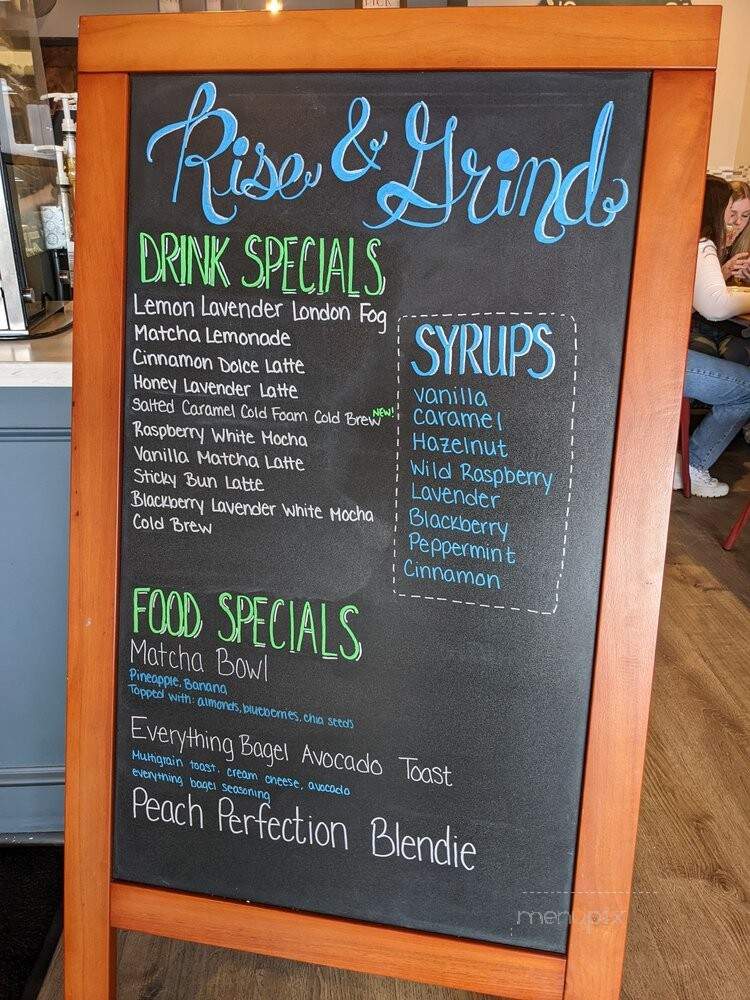 Rise & Grind
DRINK SPECIALS
Lemon Lavender London Fog
Matcha Lemonade
Cinnamon Dolce Latte
Honey Lavender Latte
Salted Caramel Cold Foam Cold Brew NEW!
Raspberry White Mocha
Vanilla Matcha Latte
Sticky Bun Latte
Blackberry Lavender White Mocha
Cold Brew
SYRUPS
Vanilla
Caramel
Hazelnut
Wild Raspberry
Lavender
Blackberry
Peppermint
Cinnamon
FOOD SPECIALS
Matcha Bowl
Pineapple, Banana
Topped with: almonds, blueberries, chia seeds
Everything Bagel Avocado Toast
Multigrain toast, cream cheese, avocado
everything bagel seasoning
Peach Perfection Blendie
menupix